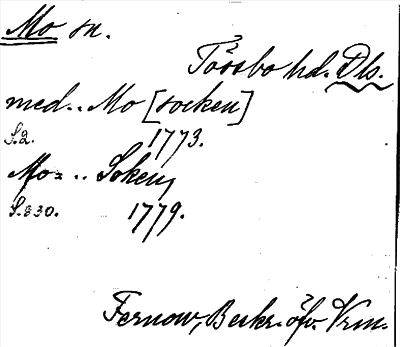 Mo sn.
Tössbo hd. Dls.
med.. Mo [socken]
S.2. 1773.
Mo= .. Soken,
S.830. 1779.
Fernow, Beskr. öfv. Vrm.